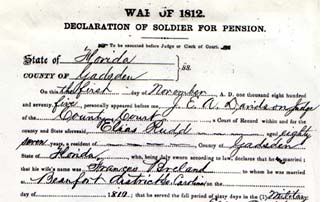 WAR OF 1812.
DECLARATION OF SOLDIER FOR PENSION.
To be executed before Judge or Clerk of Court.
State of Florida
COUNTY OF Gadsden } ss.
On this first day of November A. D. one thousand eight hundred
and seventy five, personally appeared before me J. E. A. Davidson Judge
County Court a Court of Record within and for the
county and State aforesaid Elias Rudd aged eighty
seven years, a resident of County of Gadsden
State of Florida who, being duly sworn according to law, declares that he is married;
that his wife's name was Frances Boreland to whom he was married
at Beaufort District So Carolina on the
day of , 1810; that he served the full period of sixty days in the (1) Military